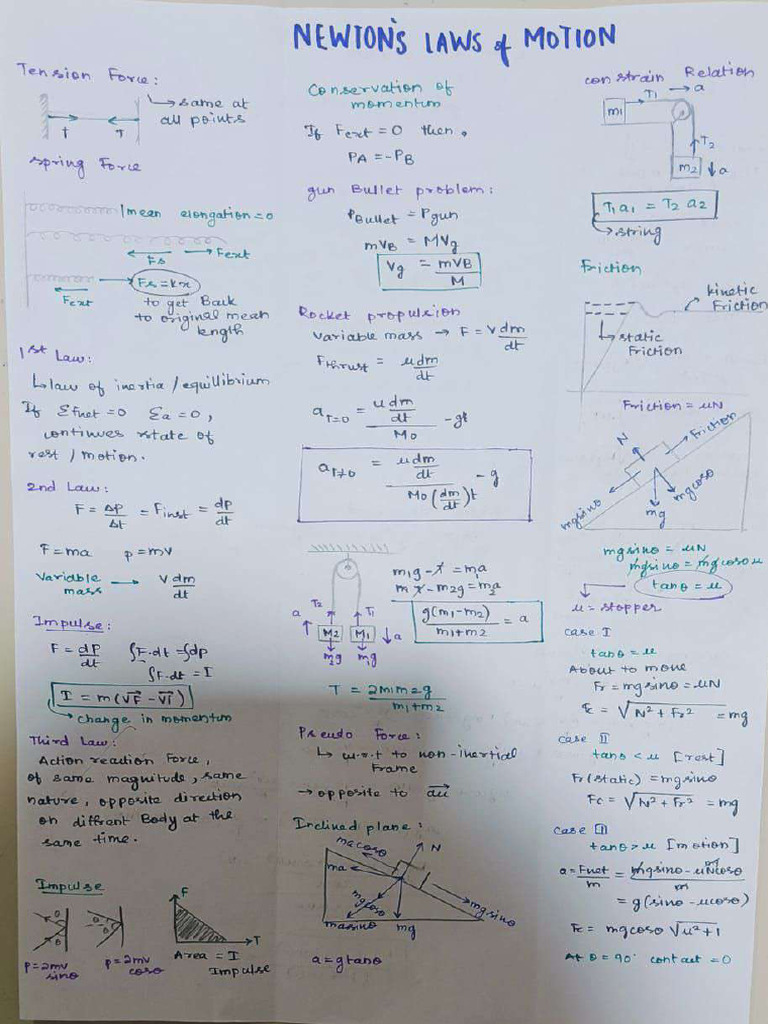 NEWTON'S LAWS of MOTION
Tension Force:
same at
all points
T T
Spring Force
mean elongation = 0
Fs Fext
Fext Fs = kx
to get Back
to original mean
length
1st Law:
↳ law of inertia / equilibrium
If ΣFnet = 0 Σa = 0,
continues state of
rest / motion.
2nd Law:
F = ΔP/Δt = Finst = dp/dt
F = ma p = mv
Variable mass → v dm/dt
Impulse:
F = dP/dt ∫F.dt = ∫dp
∫F.dt = I
I = m(vF - vi)
change in momentum
Third Law:
Action reaction Force,
of same magnitude, same
nature, opposite direction
on diffrent Body at the
same time.
Impulse
θ θ θ θ
F
T
P = 2mv sinθ P = 2mv cosθ
Area = I
Impulse
Conservation of
momentum
If Fext = 0 then.
PA = -PB
gun Bullet problem:
PBullet = Pgun
mVB = MVg
Vg = mVB/M
Rocket propulsion
Variable mass → F = v dm/dt
Fthrust = u dm/dt
aT=0 = (u dm/dt)/M0 - gt
aT≠0 = (u dm/dt)/(M0 (dm/dt)t) - g
a T2 T1 a
M2 M1
m2g m1g
m1g - T = m1a
T - m2g = m2a
g(m1-m2)/(m1+m2) = a
T = 2m1m2g/(m1+m2)
Pseudo Force:
↳ w.r.t to non-inertial
Frame
→ opposite to au
Inclined plane:
macosθ N
ma
mgcosθ mgsinθ
masinθ mg
a = gtanθ
constrain Relation
T1 → a
m1
T2
m2 ↓ a
T1 a1 = T2 a2
string
Friction
kinetic
Friction
static
Friction
Friction = μN
N Friction
mgsinθ mgcosθ
mg
mgsinθ = μN
mgsinθ = mgcosθ μ
tanθ = μ
μ = stopper
case I
tanθ = μ
About to move
Fr = mgsinθ = μN
Fc = √(N² + Fr²) = mg
case II
tanθ < μ [rest]
Fr(static) = mgsinθ
Fc = √(N² + Fr²) = mg
case III
tanθ > μ [motion]
a = Fnet/m = (mgsinθ - μNcosθ)/m
= g(sinθ - μcosθ)
Fc = mgcosθ √(μ²+1)
At θ = 90° contact = 0